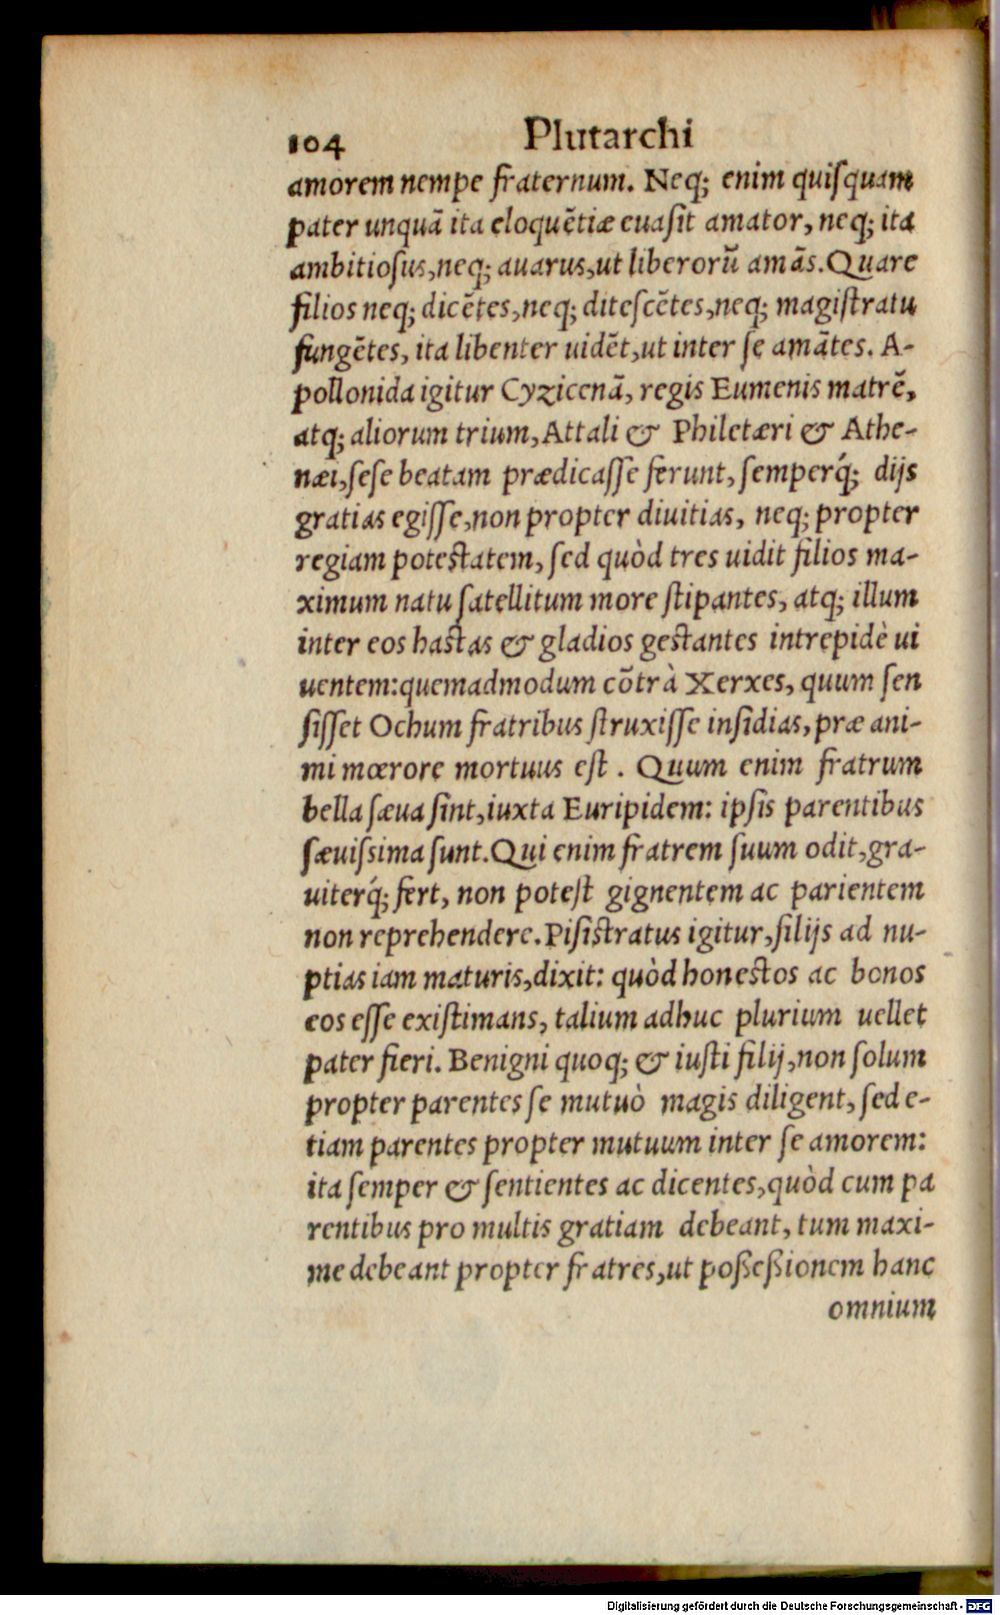 104 Plutarchi
amorem nempe fraternum. Neq; enim quiſquam
pater unquã ita eloquẽtiæ euaſit amator, neq; ita
ambitioſus, neq; auarus, ut liberorũ amãs. Quare
filios neq; dicẽtes, neq; diteſcẽtes, neq; magiſtratu
fungẽtes, ita libenter uidẽt, ut inter ſe amãtes. A-
pollonida igitur Cyzicenã, regis Eumenis matrẽ,
atq; aliorum trium, Attali & Philetæri & Athe-
næi, ſeſe beatam prædicaſſe ferunt, ſemperq́; dijs
gratias egiſſe, non propter diuitias, neq; propter
regiam poteſtatem, ſed quòd tres uidit filios ma-
ximum natu ſatellitum more ſtipantes, atq; illum
inter eos haſtas & gladios geſtantes intrepidè ui
uentem: quemadmodum cõtrà Xerxes, quum ſen
ſiſſet Ochum fratribus ſtruxiſſe inſidias, præ ani-
mi mœrore mortuus eſt. Quum enim fratrum
bella ſæua ſint, iuxta Euripidem: ipſis parentibus
ſæuiſsima ſunt. Qui enim fratrem ſuum odit, gra-
uiterq́; fert, non poteſt gignentem ac parientem
non reprehendere. Piſiſtratus igitur, filijs ad nu-
ptias iam maturis, dixit: quòd honeſtos ac bonos
eos eſſe exiſtimans, talium adhuc plurium uellet
pater fieri. Benigni quoq; & iuſti filij, non ſolum
propter parentes ſe mutuò magis diligent, ſed e-
tiam parentes propter mutuum inter ſe amorem:
ita ſemper & ſentientes ac dicentes, quòd cum pa
rentibus pro multis gratiam debeant, tum maxi-
me debeant propter fratres, ut poßeßionem hanc
omnium
Digitalisierung gefördert durch die Deutsche Forschungsgemeinschaft - DFG